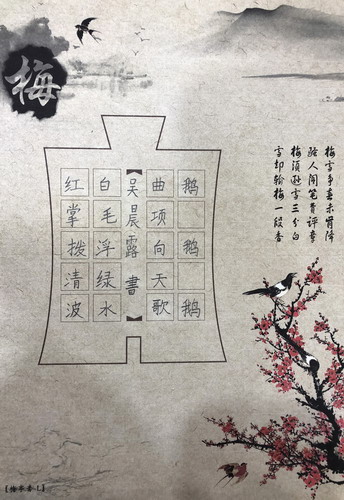 梅雪争春未肯降
骚人阁笔费评章
梅须逊雪三分白
雪却输梅一段香
鹅鹅鹅
曲项向天歌
【吴晨露書】
白毛浮绿水
红掌拨清波
梅